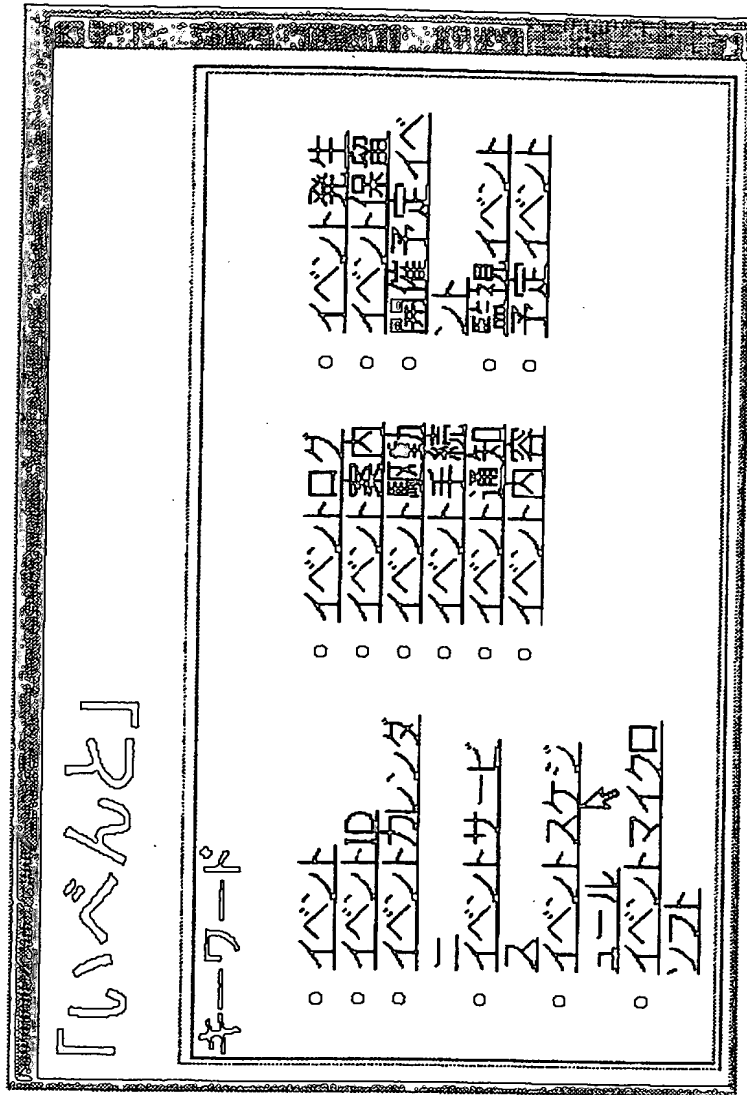 「いべんと」
キーワード
○ イベント
○ イベントID
○ イベントカレンダ
ー
○ イベントサービ
ス
○ イベントスケジ
ュール
○ イベントマイクロ
ソフト
○ イベントログ
○ イベント案内
○ イベント駆動
○ イベント手続
○ イベント通知
○ イベント内容
○ イベント発生
○ イベント保留
○ 開催予定イベ
ント
○ イベント
○ 予定イベント